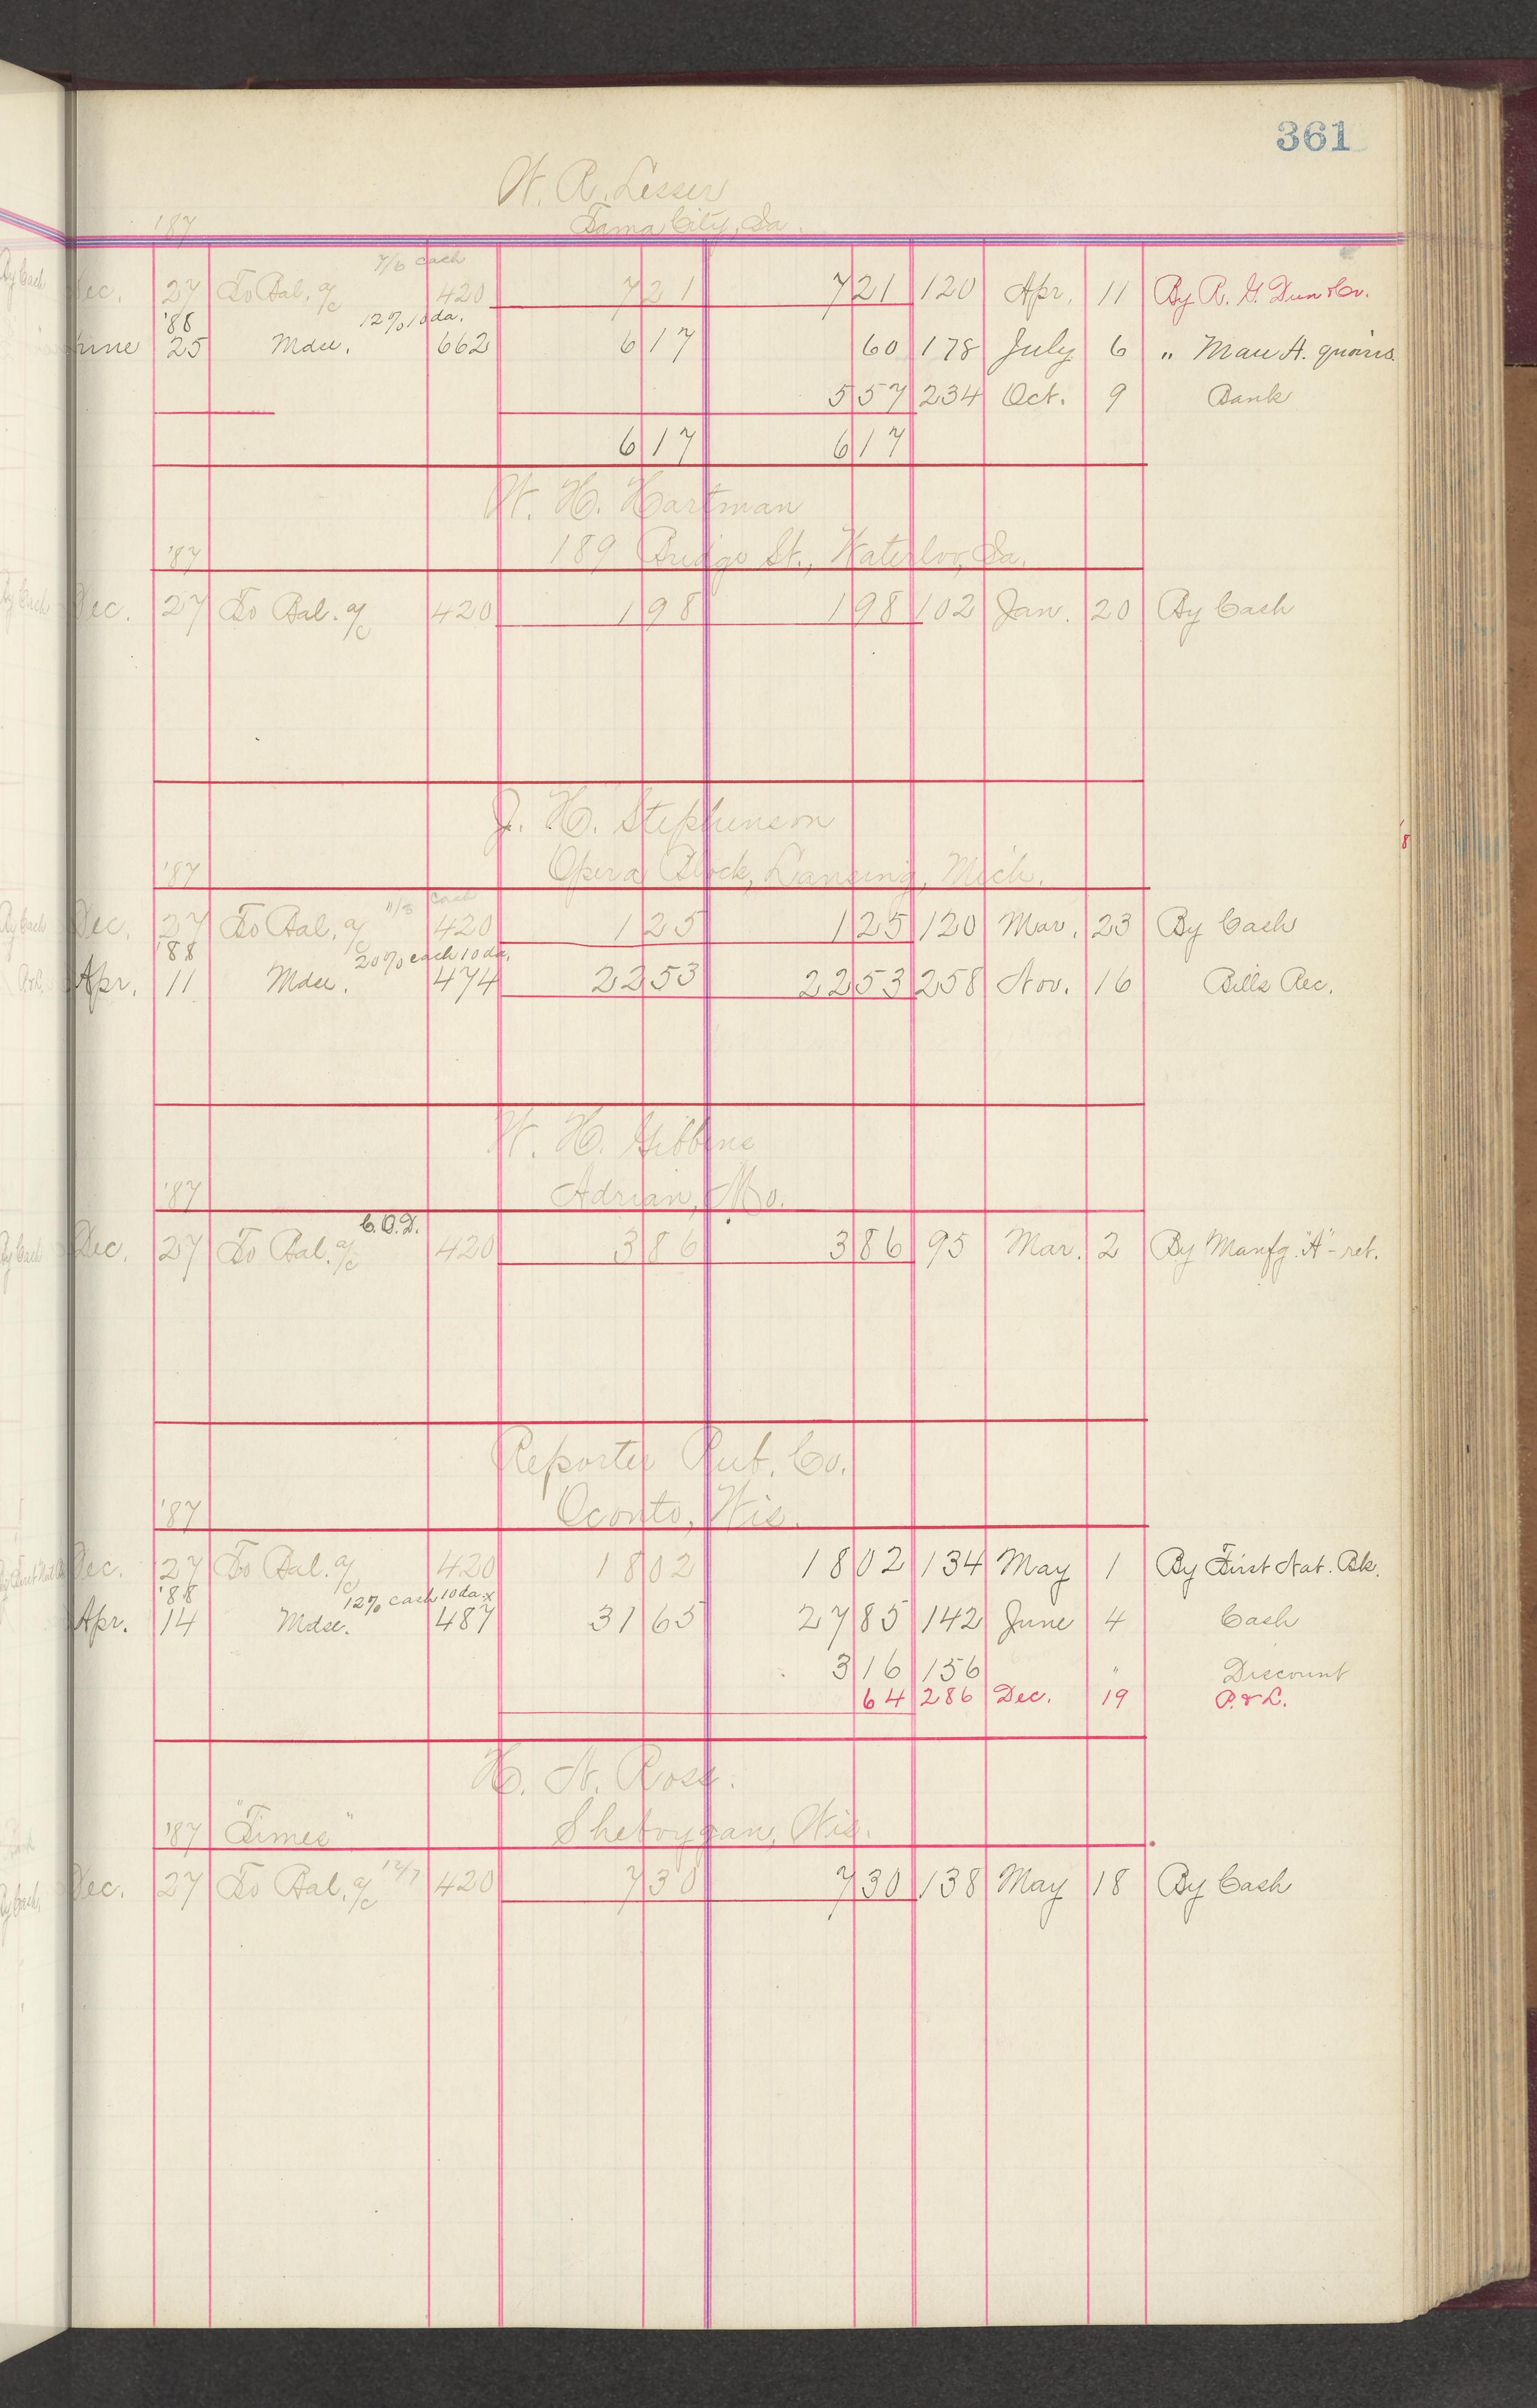 361
W. R. Lesser
'87 Tama City, Ia.
7/6 cash
Dec. 27 To Bal. a/c 420 7 21 7 21 120 Apr. 11 By R. G. Dun & Co.
'88 12% 10 da.
June 25 Mdse. 662 6 17 60 178 July 6 " Man A. quoins
5 57 234 Oct. 9 Bank
6 17 6 17
W. H. Hartman
'87 189 Bridge St., Waterloo, Ia.
Dec. 27 To Bal. a/c 420 1 98 1 98 102 Jan. 20 By Cash
J. H. Stephenson
'87 Opera Block, Lansing, Mich.
11/3 cash
Dec. 27 To Bal. a/c 420 1 25 1 25 120 Mar. 23 By Cash
'88 20% cash 10 da.
Apr. 11 Mdse. 474 22 53 22 53 258 Nov. 16 Bills Rec.
W. H. Gibbens
'87 Adrian, Mo.
C.O.D.
Dec. 27 To Bal. a/c 420 3 86 3 86 95 Mar. 2 By Manfg. "A" - ret.
Reporter Pub. Co.
'87 Oconto, Wis.
Dec. 27 To Bal. a/c 420 18 02 18 02 134 May 1 By First Nat. Bk.
'88 12% cash 10 da x
Apr. 14 Mdse. 487 31 65 27 85 142 June 4 Cash
3 16 156 " Discount
64 286 Dec. 19 P. & L.
H. N. Ross.
'87 "Times" Sheboygan, Wis.
Dec. 27 To Bal. a/c 12/7 420 7 30 7 30 138 May 18 By Cash